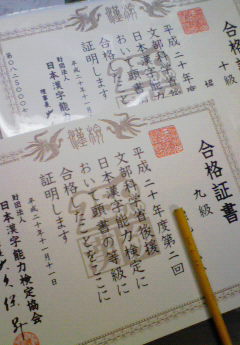 合格
十級
平成二十年
文部科学省後援
日本漢字能力
において
合格した
証明します
財団法人
日本漢字能力
漢検
合格証書
九級
平成二十年度第二回
文部科学省後援
日本漢字能力検定に
おいて頭書の等級に
合格したことをここに
証明します
平成二十年十一月十一日
財団法人
日本漢字能力検定協会